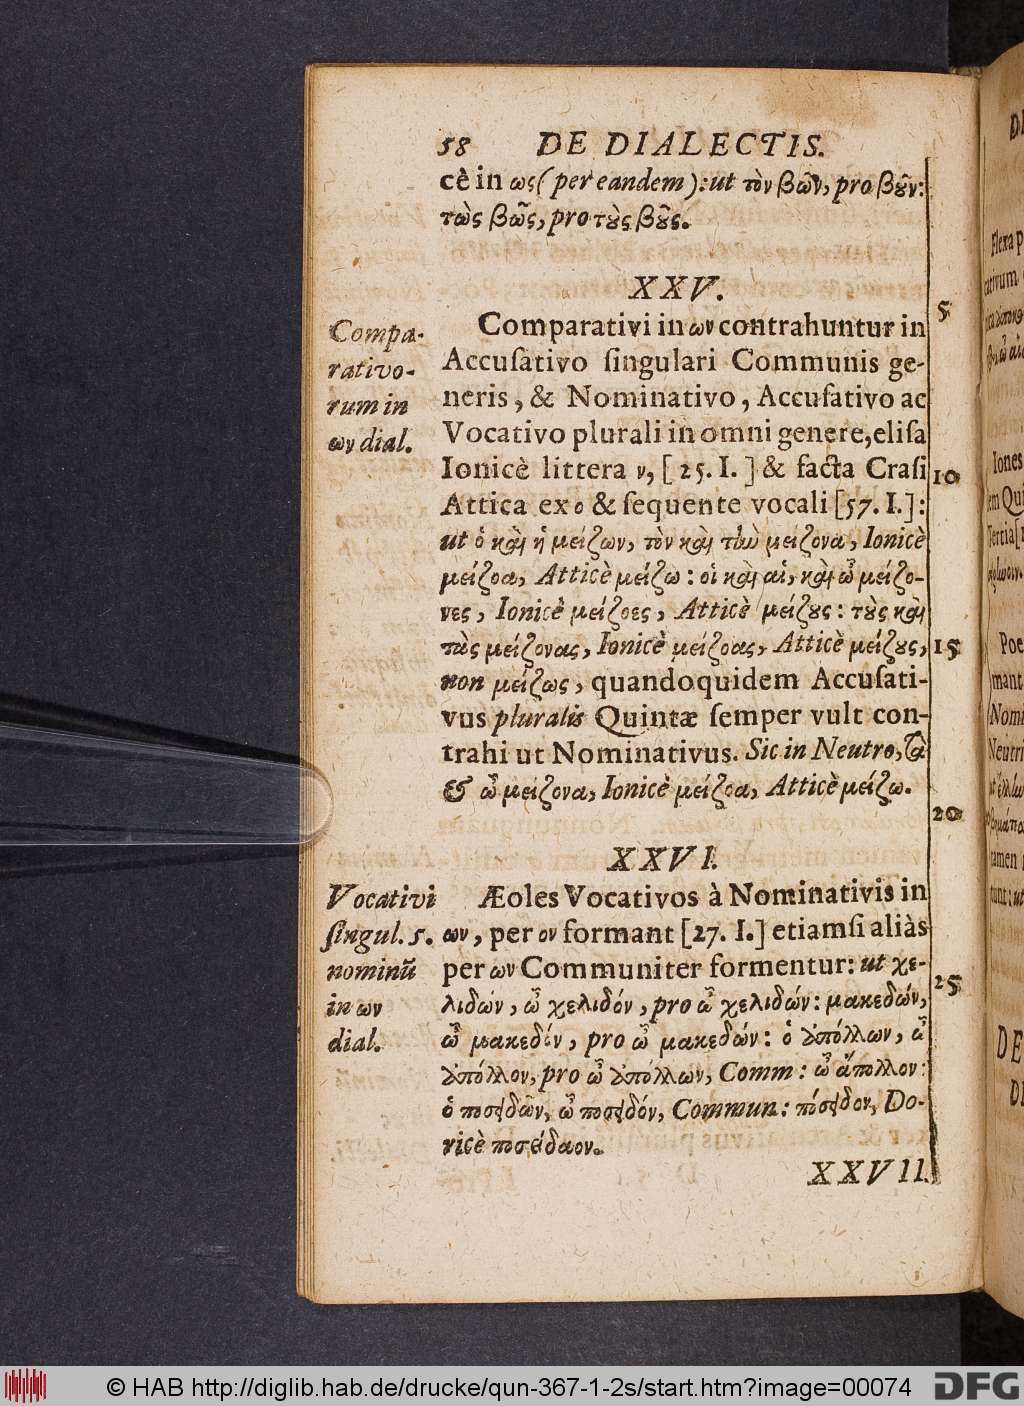 58 DE DIALECTIS.
cè in ως (per eandem): ut τὸν βῶν, pro βȣ̃ν:
τὼς βῶς, pro τȣ̀ς βȣ̃ς.
XXV.
Compa-
rativo-
rum in
ων dial.
Comparativi in ων contrahuntur in
Accuſativo ſingulari Communis ge-
neris, & Nominativo, Accuſativo ac
Vocativo plurali in omni genere, eliſa
Ionicè littera ν, [25. I.] & facta Craſi
Attica ex ο & ſequente vocali [57. I.]:
ut ὁ καὶ ἡ μείζων, τὸν καὶ τὴν μείζονα, Ionicè
μείζοα, Atticè μείζω: οἱ καὶ αἱ, καὶ ὦ μείζο-
νες, Ionicè μείζοες, Atticè μείζȣς: τȣ̀ς καὶ
τὰς μείζονας, Ionicè μείζοας, Atticè μείζȣς,
non μείζως, quandoquidem Accuſati-
vus pluralis Quintæ ſemper vult con-
trahi ut Nominativus. Sic in Neutro, τὰ
& ὦ μείζονα, Ionicè μείζοα, Atticè μείζω.
XXVI.
Vocativi
ſingul. 5.
nominū
in ων
dial.
Æoles Vocativos à Nominativis in
ων, per ον formant [27. I.] etiamſi aliàs
per ων Communiter formentur: ut χε-
λιδών, ὦ χελιδόν, pro ὦ χελιδών: μακεδών,
ὦ μακεδόν, pro ὦ μακεδών: ὁ ἀπόλλων, ὦ
ἀπόλλον, pro ὦ ἀπόλλων, Comm: ὦ ἄπολλον:
ὁ ποσειδῶν, ὦ ποσειδόν, Commun: πόσειδον, Do-
ricè ποσείδαον.
XXVII.
5
10
15
20
25
Flexa p
Iones
em Qui
Tertia
Poe
mant
Nomi
Neutri
tamen
tunt: ut
DE
© HAB http://diglib.hab.de/drucke/qun-367-1-2s/start.htm?image=00074
DFG